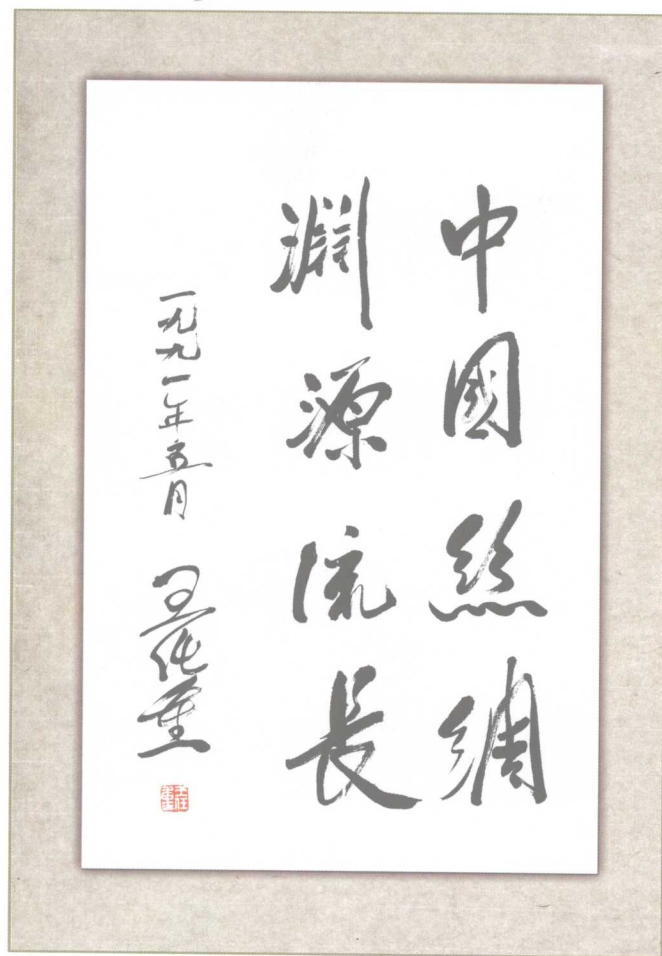 中國絲綢
淵源流長
一九九一年五月
王任重